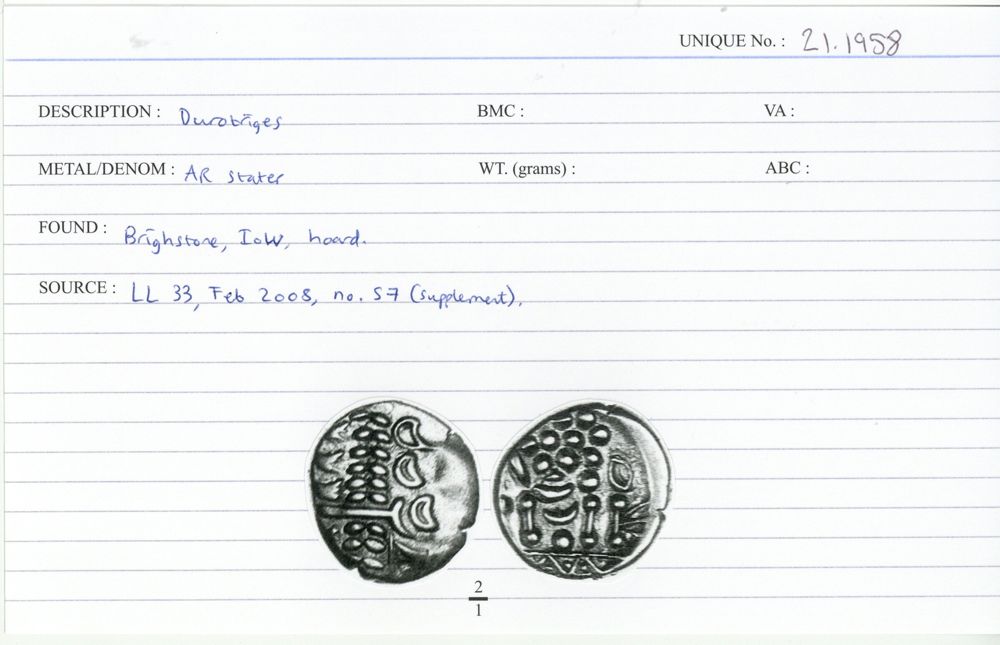 UNIQUE No. : 21.1958
DESCRIPTION : Durotriges BMC : VA :
METAL/DENOM : AR stater WT. (grams) : ABC :
FOUND : Brighstone, IoW, hoard.
SOURCE : LL 33, Feb 2008, no. 57 (supplement).
2
1